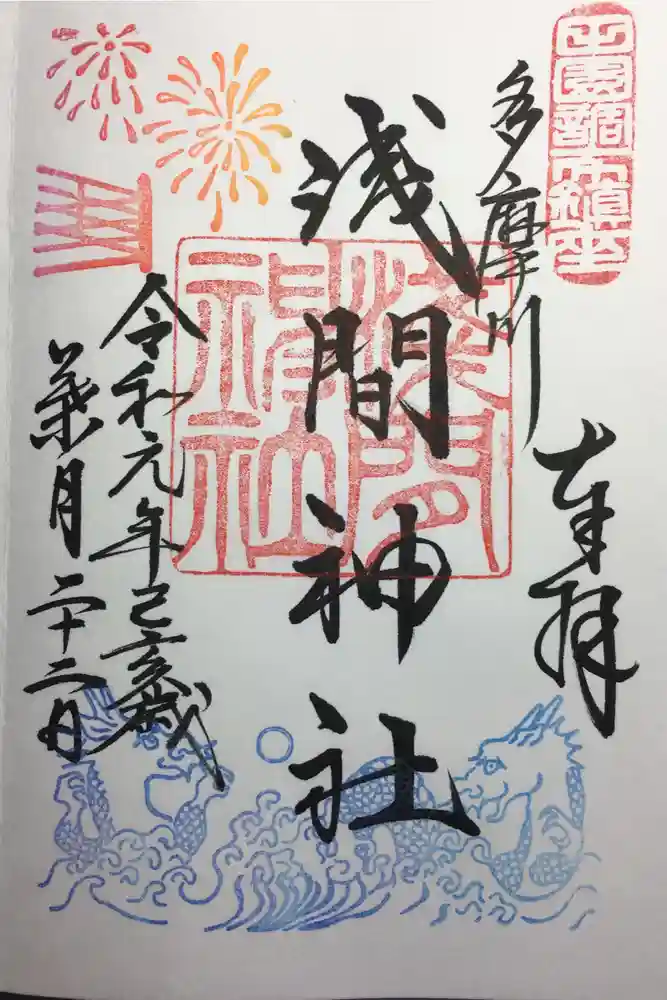 田園調布鎮座
奉拝
多摩川
浅間神社
淺間神社
令和元年己亥歳
葉月二十二日